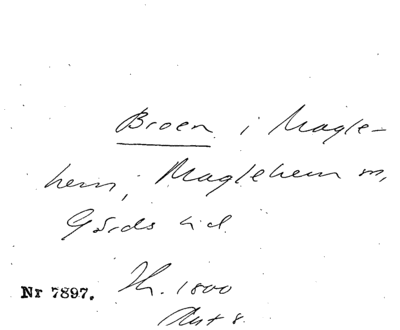 Broen i Magle-
hem, Maglehem sn,
Gärds hd.
Nr 7897. Th. 1800
8.